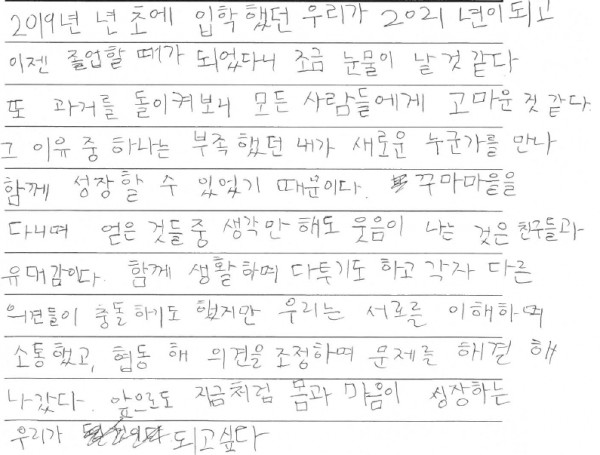 2019년 년 초에 입학했던 우리가 2021년이 되고
이젠 졸업할 때가 되었다니 조금 눈물이 날 것 같다
또 과거를 돌이켜보니 모든 사람들에게 고마운 것 같다.
그 이유 중 하나는 부족했던 내가 새로운 누군가를 만나
함께 성장할 수 있었기 때문이다. 꾸마마을을
다니며 얻은 것들중 생각만 해도 웃음이 나는 것은 친구들과
유대감이다. 함께 생활하며 다투기도 하고 각자 다른
의견들이 충돌하기도 했지만 우리는 서로를 이해하며
소통했고, 협동해 의견을 조정하며 문제를 해결해
나갔다. 앞으로도 지금처럼 몸과 마음이 성장하는
우리가 되고싶다